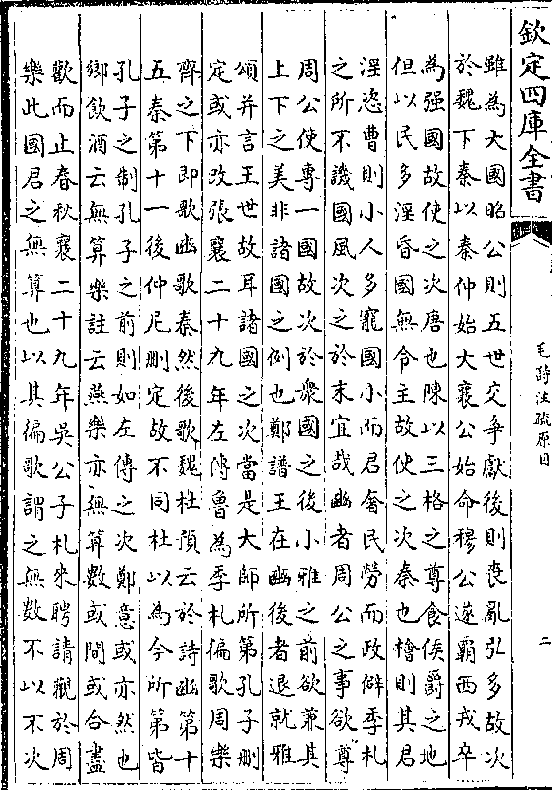 欽定四庫全書
毛詩注疏原目
二
雖為大國昭公則五世交爭獻後則喪亂弘多故次
於魏下秦以秦仲始大襄公始命穆公遂霸西戎卒
為强國故使之次唐也陳以三格之尊食侯爵之地
但以民多淫昏國無令主故使之次秦也檜則其君
淫恣曹則小人多寵國小而君奢民勞而政僻季札
之所不譏國風次之於末宜哉豳者周公之事欲尊
周公使專一國故次於衆國之後小雅之前欲兼其
上下之美非諸國之例也鄭譜王在豳後者退就雅
頌并言王世故耳諸國之次當是大師所第孔子刪
定或亦改張襄二十九年左傳魯為季札徧歌周樂
齊之下即歌豳歌秦然後歌魏杜預云於詩豳第十
五秦第十一後仲尼刪定故不同杜以為今所第皆
孔子之制孔子之前則如左傳之次鄭意或亦然也
鄉飲酒云無算樂註云燕樂亦無算數或間或合盡
歡而止春秋襄二十九年吳公子札來聘請觀於周
樂此國君之無算也以其徧歌謂之無數不以不次